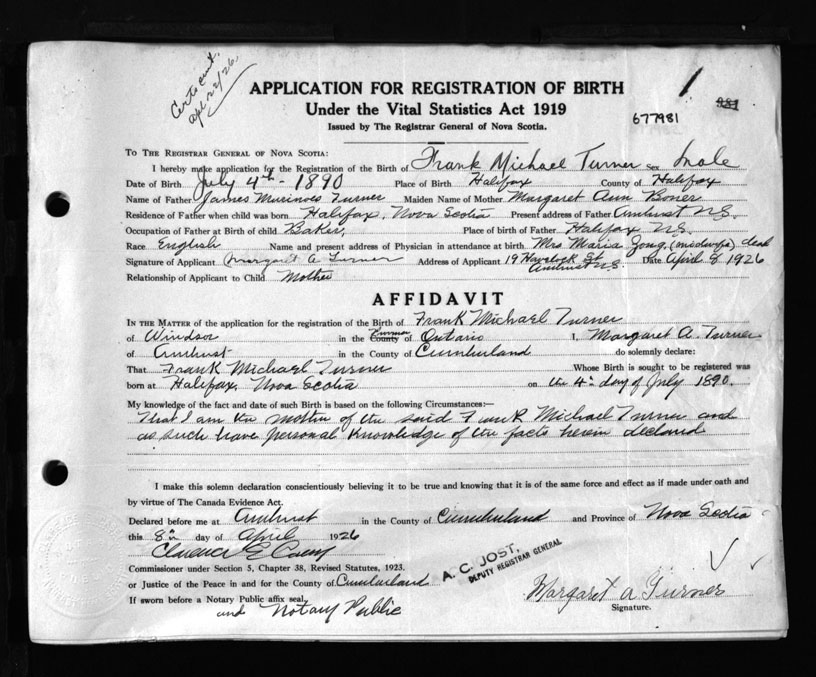 Certs cont.
apl 22/26
APPLICATION FOR REGISTRATION OF BIRTH
Under the Vital Statistics Act 1919
Issued by The Registrar General of Nova Scotia.
1
981
677981
To The Registrar General of Nova Scotia:
I hereby make application for the Registration of the Birth of Frank Michael Turner Sex Male
Date of Birth July 4th - 1890 Place of Birth Halifax County of Halifax
Name of Father James Turner Maiden Name of Mother Margaret Ann
Residence of Father when child was born Halifax, Nova Scotia Present address of Father Amherst N.S.
Occupation of Father at Birth of child Baker, Place of birth of Father Halifax N.S.
Race English Name and present address of Physician in attendance at birth Mrs Maria (midwife) dead
Signature of Applicant Margaret A Turner Address of Applicant 19 Havelock St Amherst N.S. Date April 8 1926
Relationship of Applicant to Child Mother
AFFIDAVIT
In the Matter of the application for the registration of the Birth of Frank Michael Turner
of Windsor in the County of Ontario I, Margaret A. Turner
of Amherst in the County of Cumberland do solemnly declare:
That Frank Michael Turner Whose Birth is sought to be registered was
born at Halifax, Nova Scotia on the 4th day of July 1890.
My knowledge of the fact and date of such Birth is based on the following Circumstances:—
That I am the mother of the said Frank Michael Turner and
as such have personal knowledge of the facts herein declared
I make this solemn declaration conscientiously believing it to be true and knowing that it is of the same force and effect as if made under oath and
by virtue of The Canada Evidence Act.
Declared before me at Amherst in the County of Cumberland and Province of Nova Scotia
this 8th day of April 1926
Clarence E
Commissioner under Section 5, Chapter 38, Revised Statutes, 1923.
or Justice of the Peace in and for the County of Cumberland
If sworn before a Notary Public affix seal,
and Notary Public
A. C. JOST,
DEPUTY REGISTRAR GENERAL
Margaret A Turner
Signature.